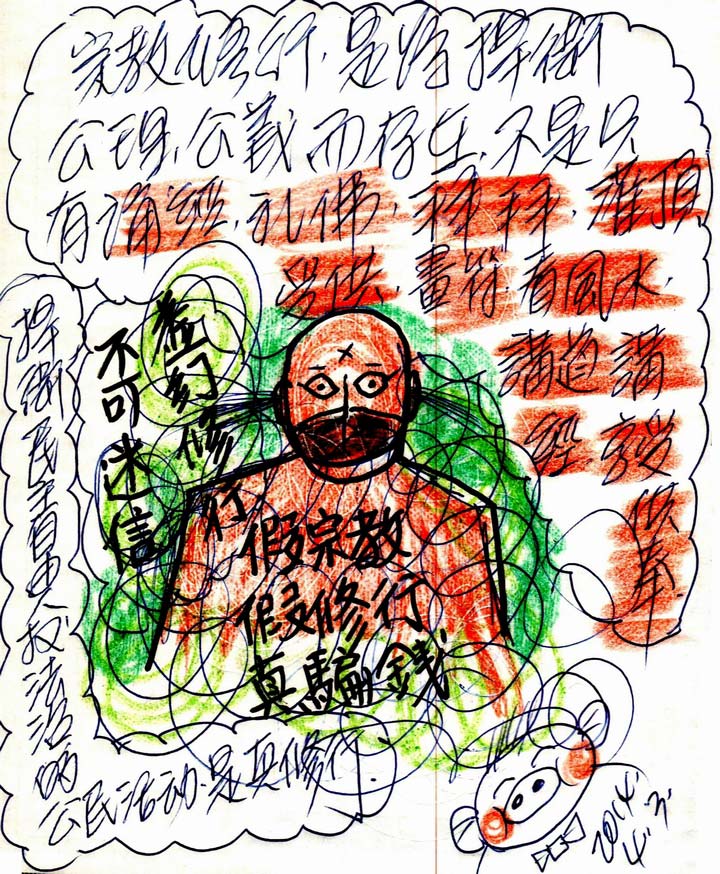 宗教修行,是為捍衛
公理,公義而存在,不是只
有誦經,礼佛,拜拜,灌頂,
受供,畫符,看風水,
講道講
經享受
供奉
修行
不可迷信
假宗教
假修行
真騙錢
捍衛民主自由人权法治的
公民活动,是真修行
2014.
4.3.